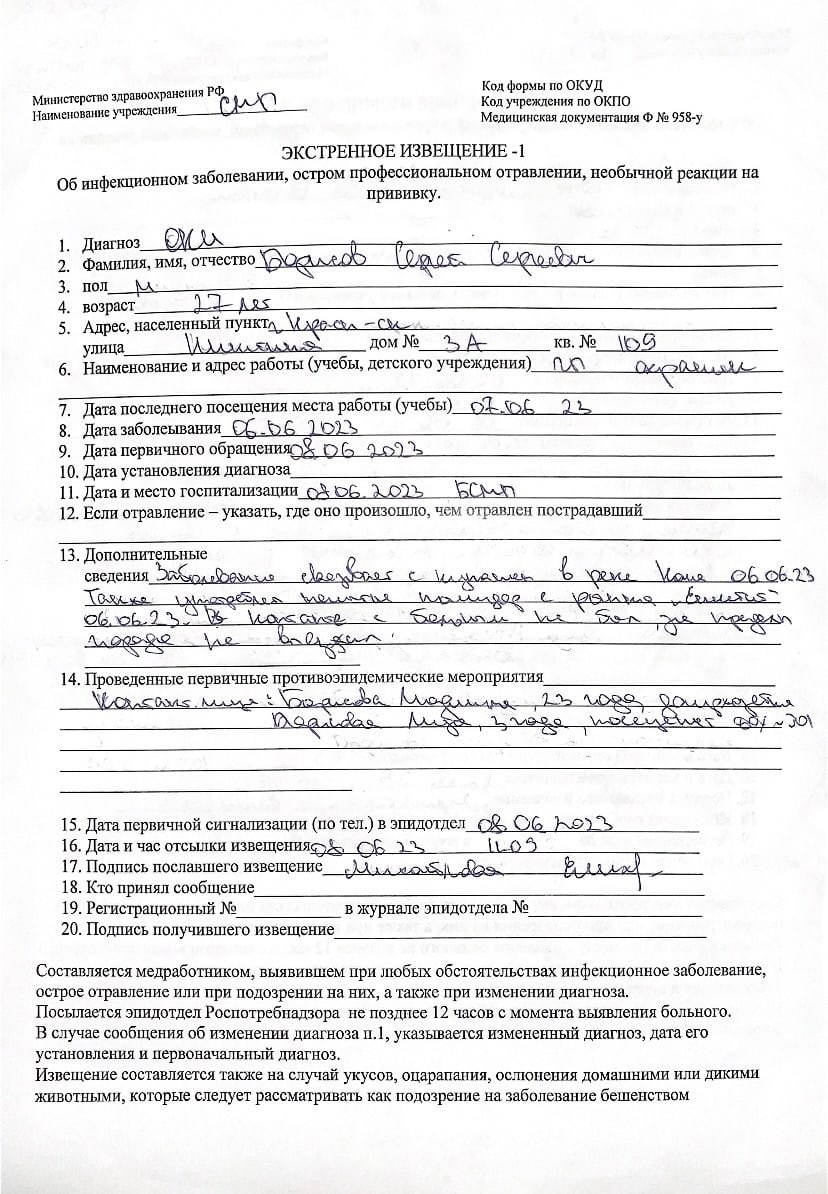 Министерство здравоохранения РФ
Наименование учреждения СМП
Код формы по ОКУД
Код учреждения по ОКПО
Медицинская документация Ф № 958-у
ЭКСТРЕННОЕ ИЗВЕЩЕНИЕ -1
Об инфекционном заболевании, остром профессиональном отравлении, необычной реакции на
прививку.
1. Диагноз ОКИ
2. Фамилия, имя, отчество Сергей Сергеевич
3. пол м
4. возраст 27 лет
5. Адрес, населенный пункт
улица дом № 3А кв. № 109
6. Наименование и адрес работы (учебы, детского учреждения) охранник
7. Дата последнего посещения места работы (учебы) 07.06 23
8. Дата заболеывания 06.06 2023
9. Дата первичного обращения 08 06 2023
10. Дата установления диагноза
11. Дата и место госпитализации 08 06.2023 БСМП
12. Если отравление – указать, где оно произошло, чем отравлен пострадавший
13. Дополнительные
сведения Заболевание связывает с купанием в реке Кача 06.06.23
Также употреблял помидор с рынка
06.06.23. В контакте с больными не был, за пределы
города не выезжал.
14. Проведенные первичные противоэпидемические мероприятия
Контакт. лица: 23 года,
3 года, посещает 301
15. Дата первичной сигнализации (по тел.) в эпидотдел 08 06 2023
16. Дата и час отсылки извещения 08 06 23 1109
17. Подпись пославшего извещение
18. Кто принял сообщение
19. Регистрационный № в журнале эпидотдела №
20. Подпись получившего извещение
Составляется медработником, выявившем при любых обстоятельствах инфекционное заболевание,
острое отравление или при подозрении на них, а также при изменении диагноза.
Посылается эпидотдел Роспотребнадзора не позднее 12 часов с момента выявления больного.
В случае сообщения об изменении диагноза п.1, указывается измененный диагноз, дата его
установления и первоначальный диагноз.
Извещение составляется также на случай укусов, оцарапания, ослюнения домашними или дикими
животными, которые следует рассматривать как подозрение на заболевание бешенством